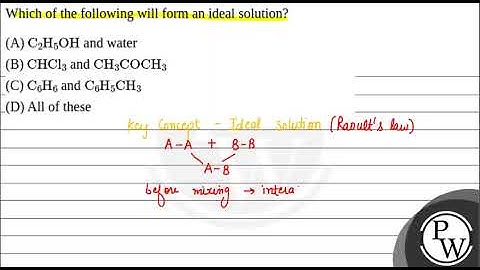 Which of the following will form an ideal solution?
(A) C₂H₅OH and water
(B) CHCl₃ and CH₃COCH₃
(C) C₆H₆ and C₆H₅CH₃
(D) All of these
Key Concept - Ideal solution (Raoult's law)
A-A + B-B
A-B
before mixing → intera
PW